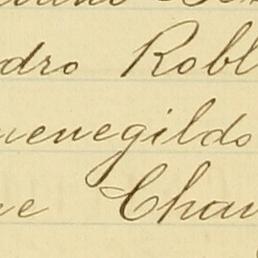 dro Robl
menegildo
ne Chav